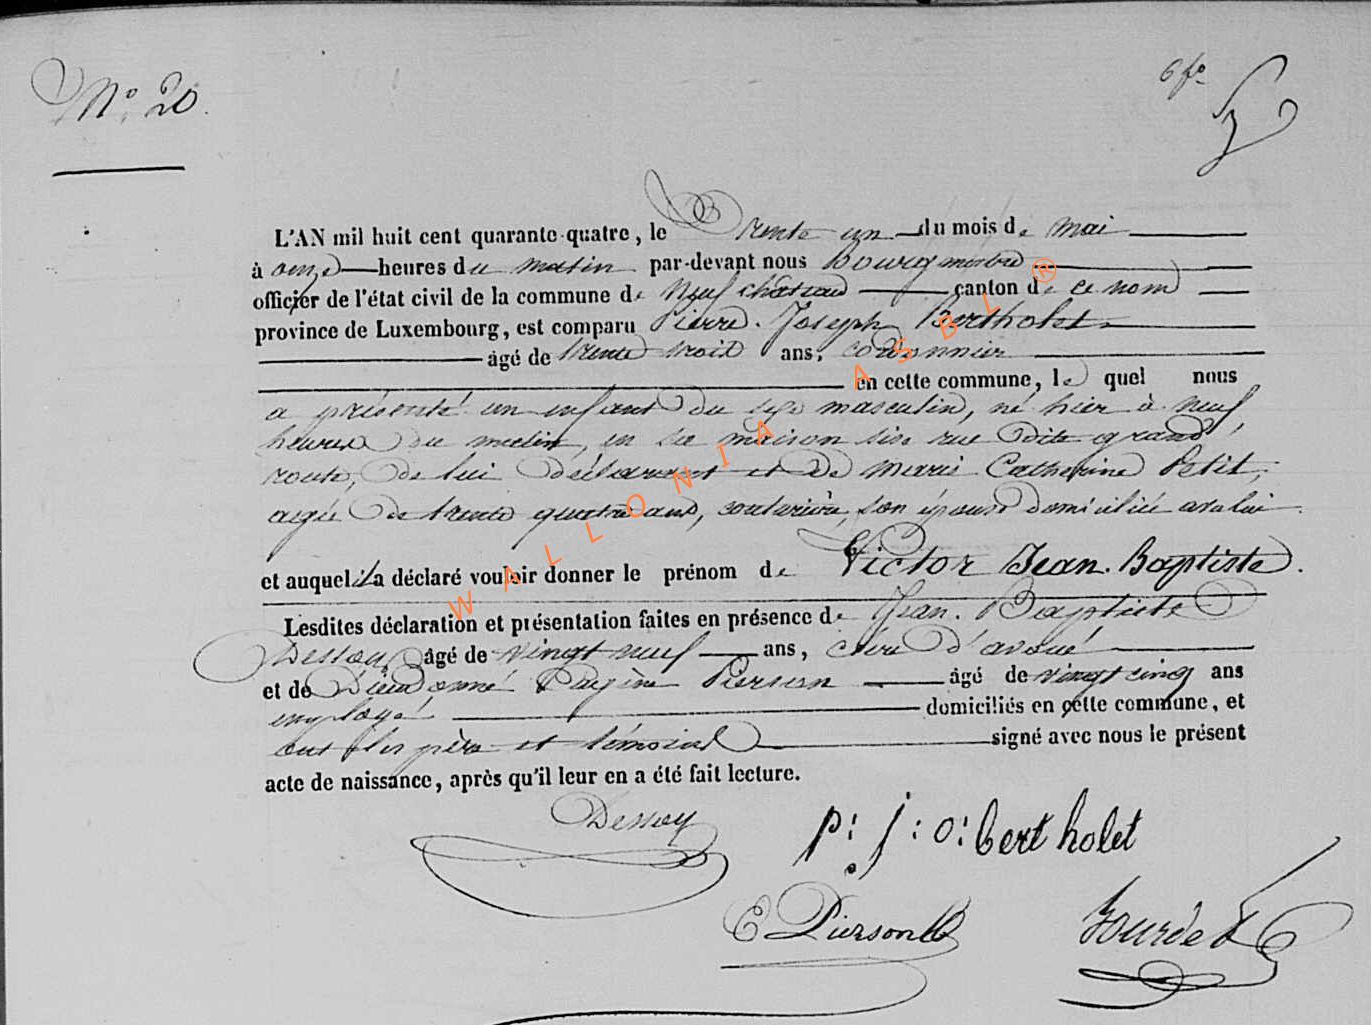 N° 20.
6 fo
L'AN mil huit cent quarante-quatre, le trente un du mois de mai
à onze heures du matin par-devant nous Bourgmestre
officier de l'état civil de la commune de Neufchateau canton de ce nom
province de Luxembourg, est comparu Pierre Joseph Bertholet
âgé de trente trois ans, cordonnier
en cette commune, lequel nous
a présenté un enfant du sexe masculin, né hier à neuf
heures du matin, en sa maison sise rue dite grand'
route, de lui déclarant et de Marie Catherine Petit,
agée de trente quatre ans, couturière, son épouse domiciliée avec lui
et auquel il a déclaré vouloir donner le prénom de Victor Jean-Baptiste.
Lesdites déclaration et présentation faites en présence de Jean-Baptiste
Dessoy âgé de vingt neuf ans, clerc d'avoué
et de Dieudonné Eugène Pierson âgé de vingt cinq ans
employé domiciliés en cette commune, et
ont les père et témoins signé avec nous le présent
acte de naissance, après qu'il leur en a été fait lecture.
Dessoy
p: j: o: bertholet
E Pierson
WALLONIA ASBL ®